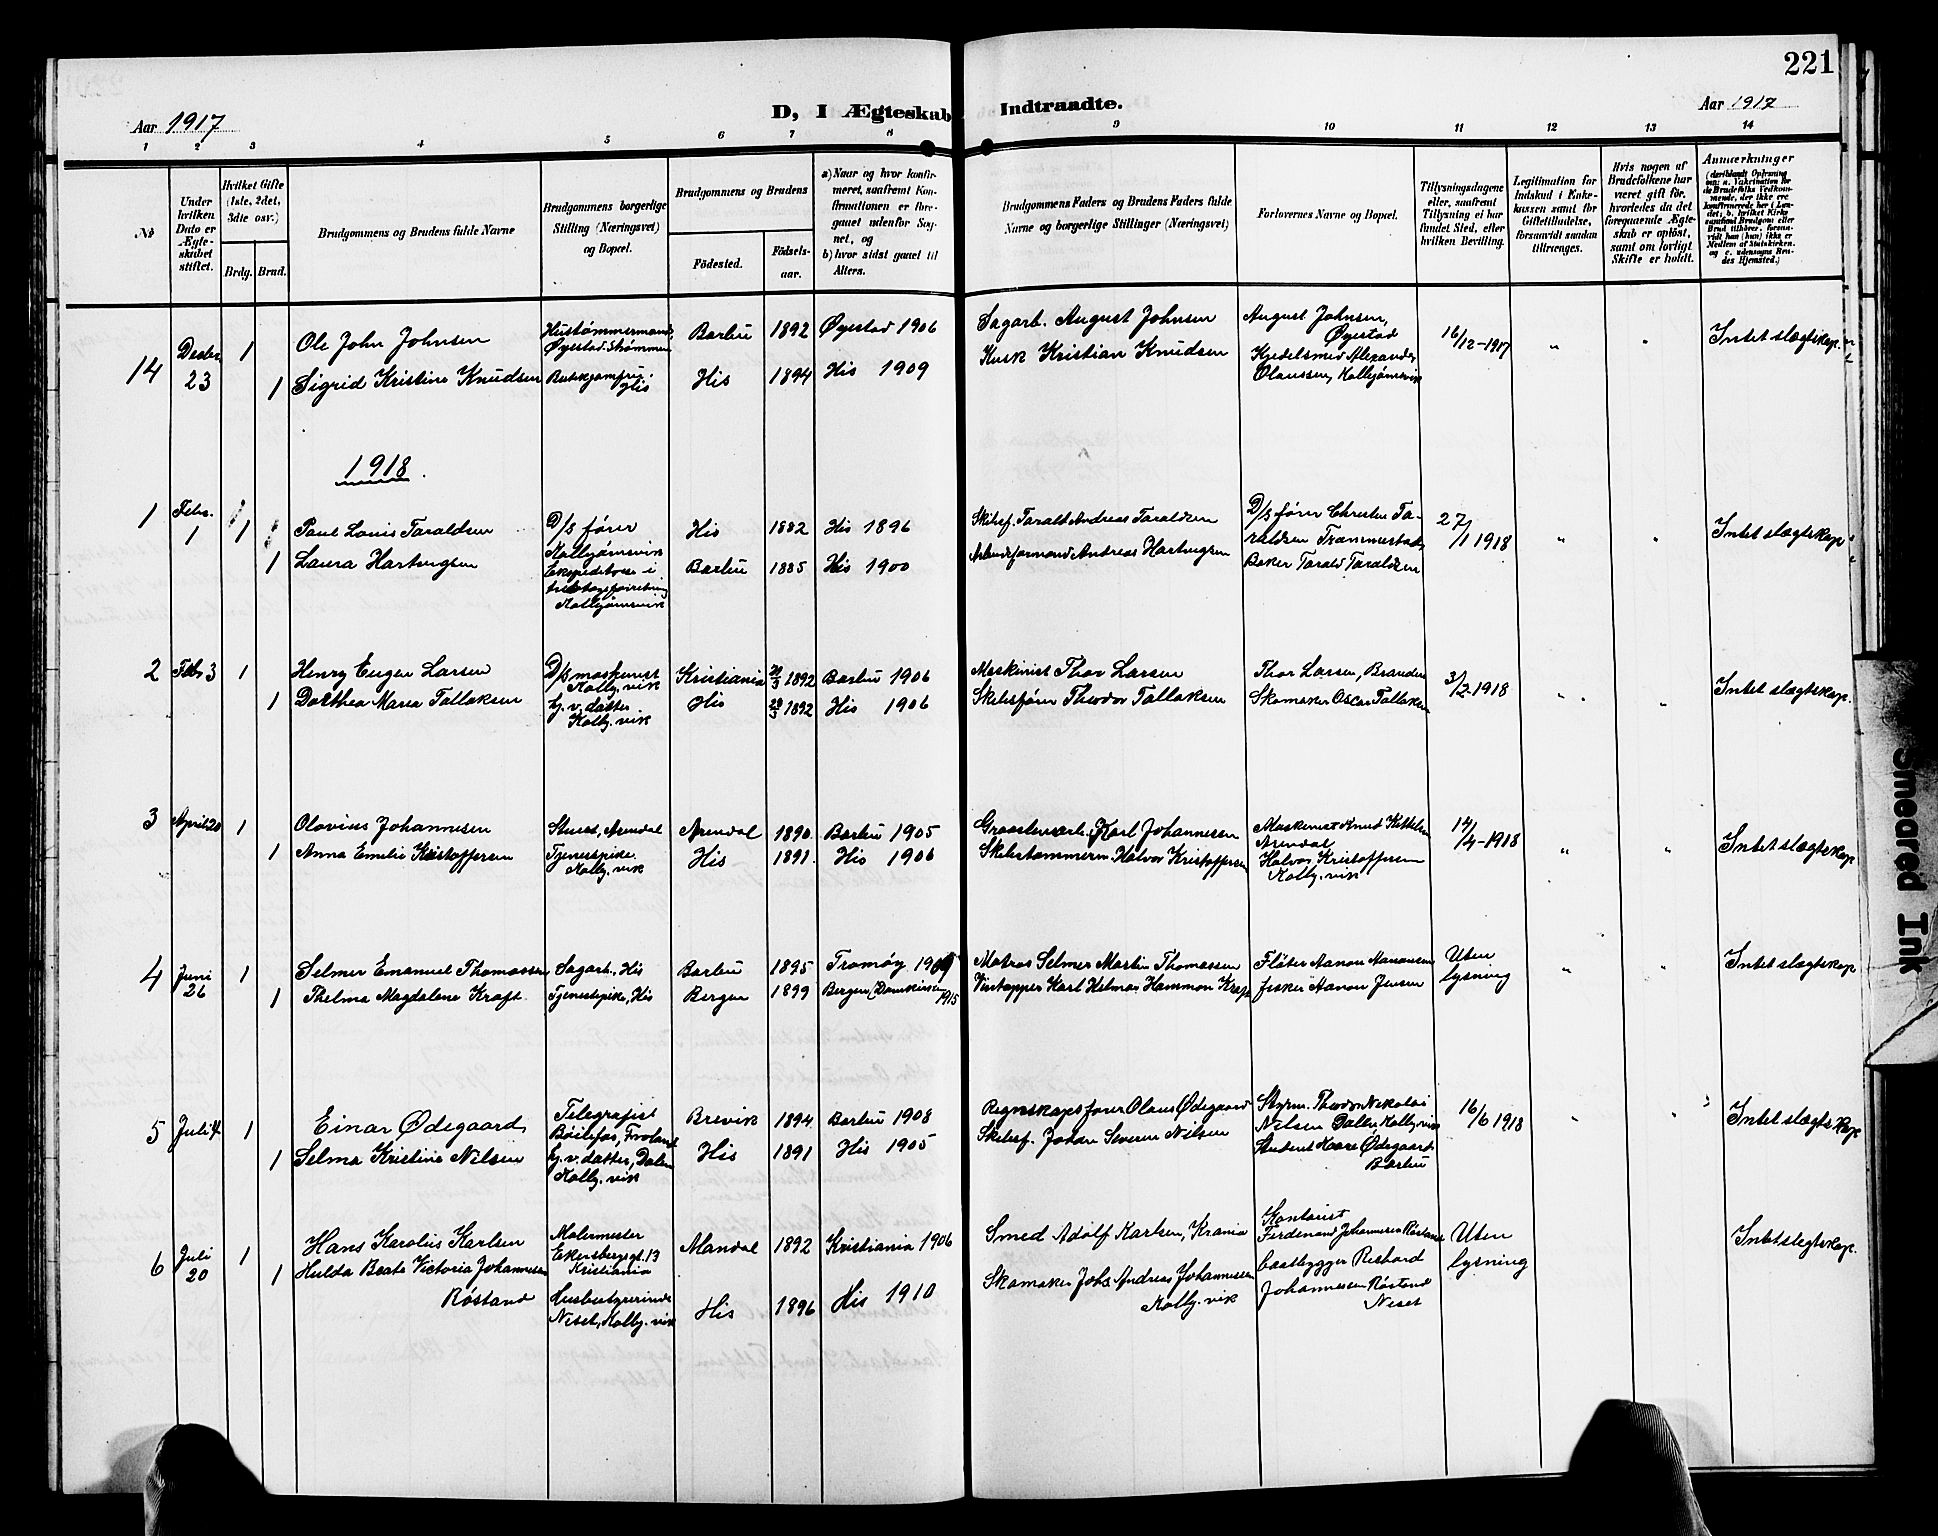 221
D, I Ægteskab Indtraadte.
Aar 1917
Aar 1917
1 2 3 4 5 6 7 8 9 10 11 12 13 14
No
Under hvilken Dato er Ægteskabet stiftet.
Hvilket Gifte (1ste, 2det, 3die osv.)
Brdg. Brud.
Brudgommens og Brudens fulde Navne
Brudgommens borgerlige Stilling (Næringsvei) og Bopæl.
Brudgommens og Brudens
Födested.
Födselsaar.
a) Naar og hvor konfirmeret, saafremt Konfirmationen er foregaaet udenfor Sognet, og
b) hvor sidst gaaet til Alters.
Brudgommens Faders og Brudens Faders fulde Navne og borgerlige Stillinger (Næringsvei)
Forlovernes Navne og Bopæl.
Tillysningsdagene eller, saafremt Tillysning ei har fundet Sted, efter hvilken Bevilling.
Legitimation for Indskud i Enkekassen samt for Giftetilladelse, forsaavidt saadan tiltrænges.
Hvis nogen af Brudefolkene har været gift för, hvorledes da det foregaaende Ægteskab er oplöst, samt om lovligt Skifte er holdt.
Anmærkninger
14
Desbr. 23
1
Ole John Johnsen
Hustømmermand, Øyestad. Strømmen
Barbu
1892
Øyestad 1906
Sagarb. August Johnsen
August Johnsen, Øyestad
16/12-1917
"
"
Intet slægtskap.
1
Sigrid Kristine Knudsen
Butikjomfru. His
His
1894
His 1909
Kusk Kristian Knudsen
Kjedelsmed Alexander Olaussen, Kolbjørnsvik
1918.
1
Febr. 1
1
Paul Louis Taraldsen
D/s fører Kolbjørnsvik
His
1882
His 1896
Skibsf. Taralt Andreas Taraldsen
D/s fører Christen Taraldsen
27/1 1918
"
"
Intet slægtskap
1
Laura Hartvigsen
Kolbjørnsvik
Barbu
1885
His 1900
Andreas Hartvigsen
Baker Tarald Taraldsen
2
Feb 3
1
Henry Eugen Larsen
D/s maskinist Kolbj.vik
Kristiania
1892
Barbu 1906
Maskinist Thor Larsen
Thor Larsen,
3/2-1918
"
"
Intet slægtskap.
1
Dorthea Maria Tallaksen
hj. v. datter Kolbj.vik
His
1892
His 1906
Skibsfører Theodor Tallaksen
Skomaker Oscar Tallaksen
3
April 20
1
Olavius Johannesen
Arendal
Arendal
1890.
Barbu 1905
Karl Johannesen
Maskinist Knud Kittelsen Arendal
14/4-1918
"
"
Intet slægtskap
1
Anna Emilie Kristoffersen
Tjenestpike. Kolbj.vik
His
1891.
His 1906
Halvor Kristoffersen
Halvor Kristoffersen Kolbj.vik
4
Juni 26
1
Selmer Emanuel Thomassen
Sagarb., His
Barbu
1895
Tromøy 1909
Matros Selmer Martin Thomassen
Fløter Aanon Aanonsen
Uten lysning
"
"
Intet slægtskap
1
Thelma Magdalene Kraft.
Tjenestpike, His
Bergen
1899
Bergen (Domkirken 1915
Vintapper Karl Helmar Hammon Kraft
fisker Aanon Jensen
5
Juli
1
Einar Ødegaard
Telegrafist Bøilefos, Froland
Brevik
1894
Barbu 1908
Regnskapsfører Olaus Ødegaard
Styrm. Theodor Nikolai Nilsen Dalen, Kolbj.vik
16/6 1918
"
"
Intet slægtskap
1
Selma Kristine Nilsen
hj. v. datter, Dalen Kolbj.vik
His
1891
His 1905
Skibsf. Johan Severin Nilsen
Student Kaare Ødegaard Barbu
6
Juli 20
1
Hans Karolius Karlsen
Malermester Ekersbergsgt. 13 Kristiania
Mandal
1892
Kristiania 1906
Smed Adolf Karlsen, Krania
Kontorist Ferdinand Johannesen Røstand
Uten lysning
Intet slegtskap.
1
Hulda Beate Victoria Johannesen Røstand
Husbestyrerinde Neset, Kolbj.vik
His
1896
His 1910
Skomaker Johs Andreas Johannessen Kolbj.vik
baatbygger Rishard Johannessen Røstand Neset
Smeared Ink